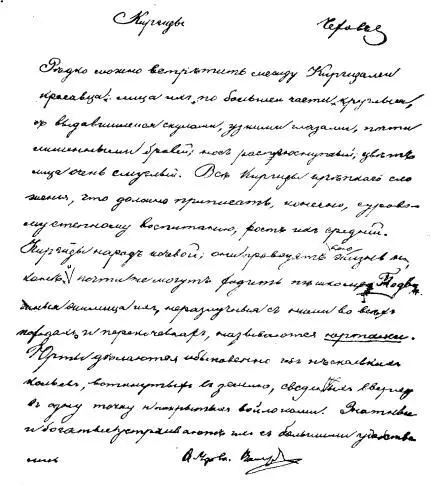 Киргизы Черовые
Рѣдко можно встрѣтить между Киргизами
красавца. лица ихъ по большей части круглыя,
съ выдавшимися скулами, узкими глазами, почти
лишенными бровей; носъ расплюснутый; цвѣтъ
лица очень смуглый. Всѣ Киргизы крѣпкаго сло
женія, что должно приписать, конечно, сурово-
му степному воспитанію, ростъ ихъ средній.
Киргизы народъ кочевой; они проводятъ жизнь на
конѣ, и почти не могутъ ходить пѣшкомъ. Подви
жныя жилища ихъ, неразлучныя съ ними во всѣхъ
и перекочевкахъ, называются юртами.
Юрты дѣлаются обыкновенно изъ нѣсколькихъ
кольевъ, воткнутыхъ въ землю, сведенныхъ вверху
въ одну точку и покрытыхъ войлоками. Знатные
и богатые устраиваютъ ихъ съ большими удобства
ми.